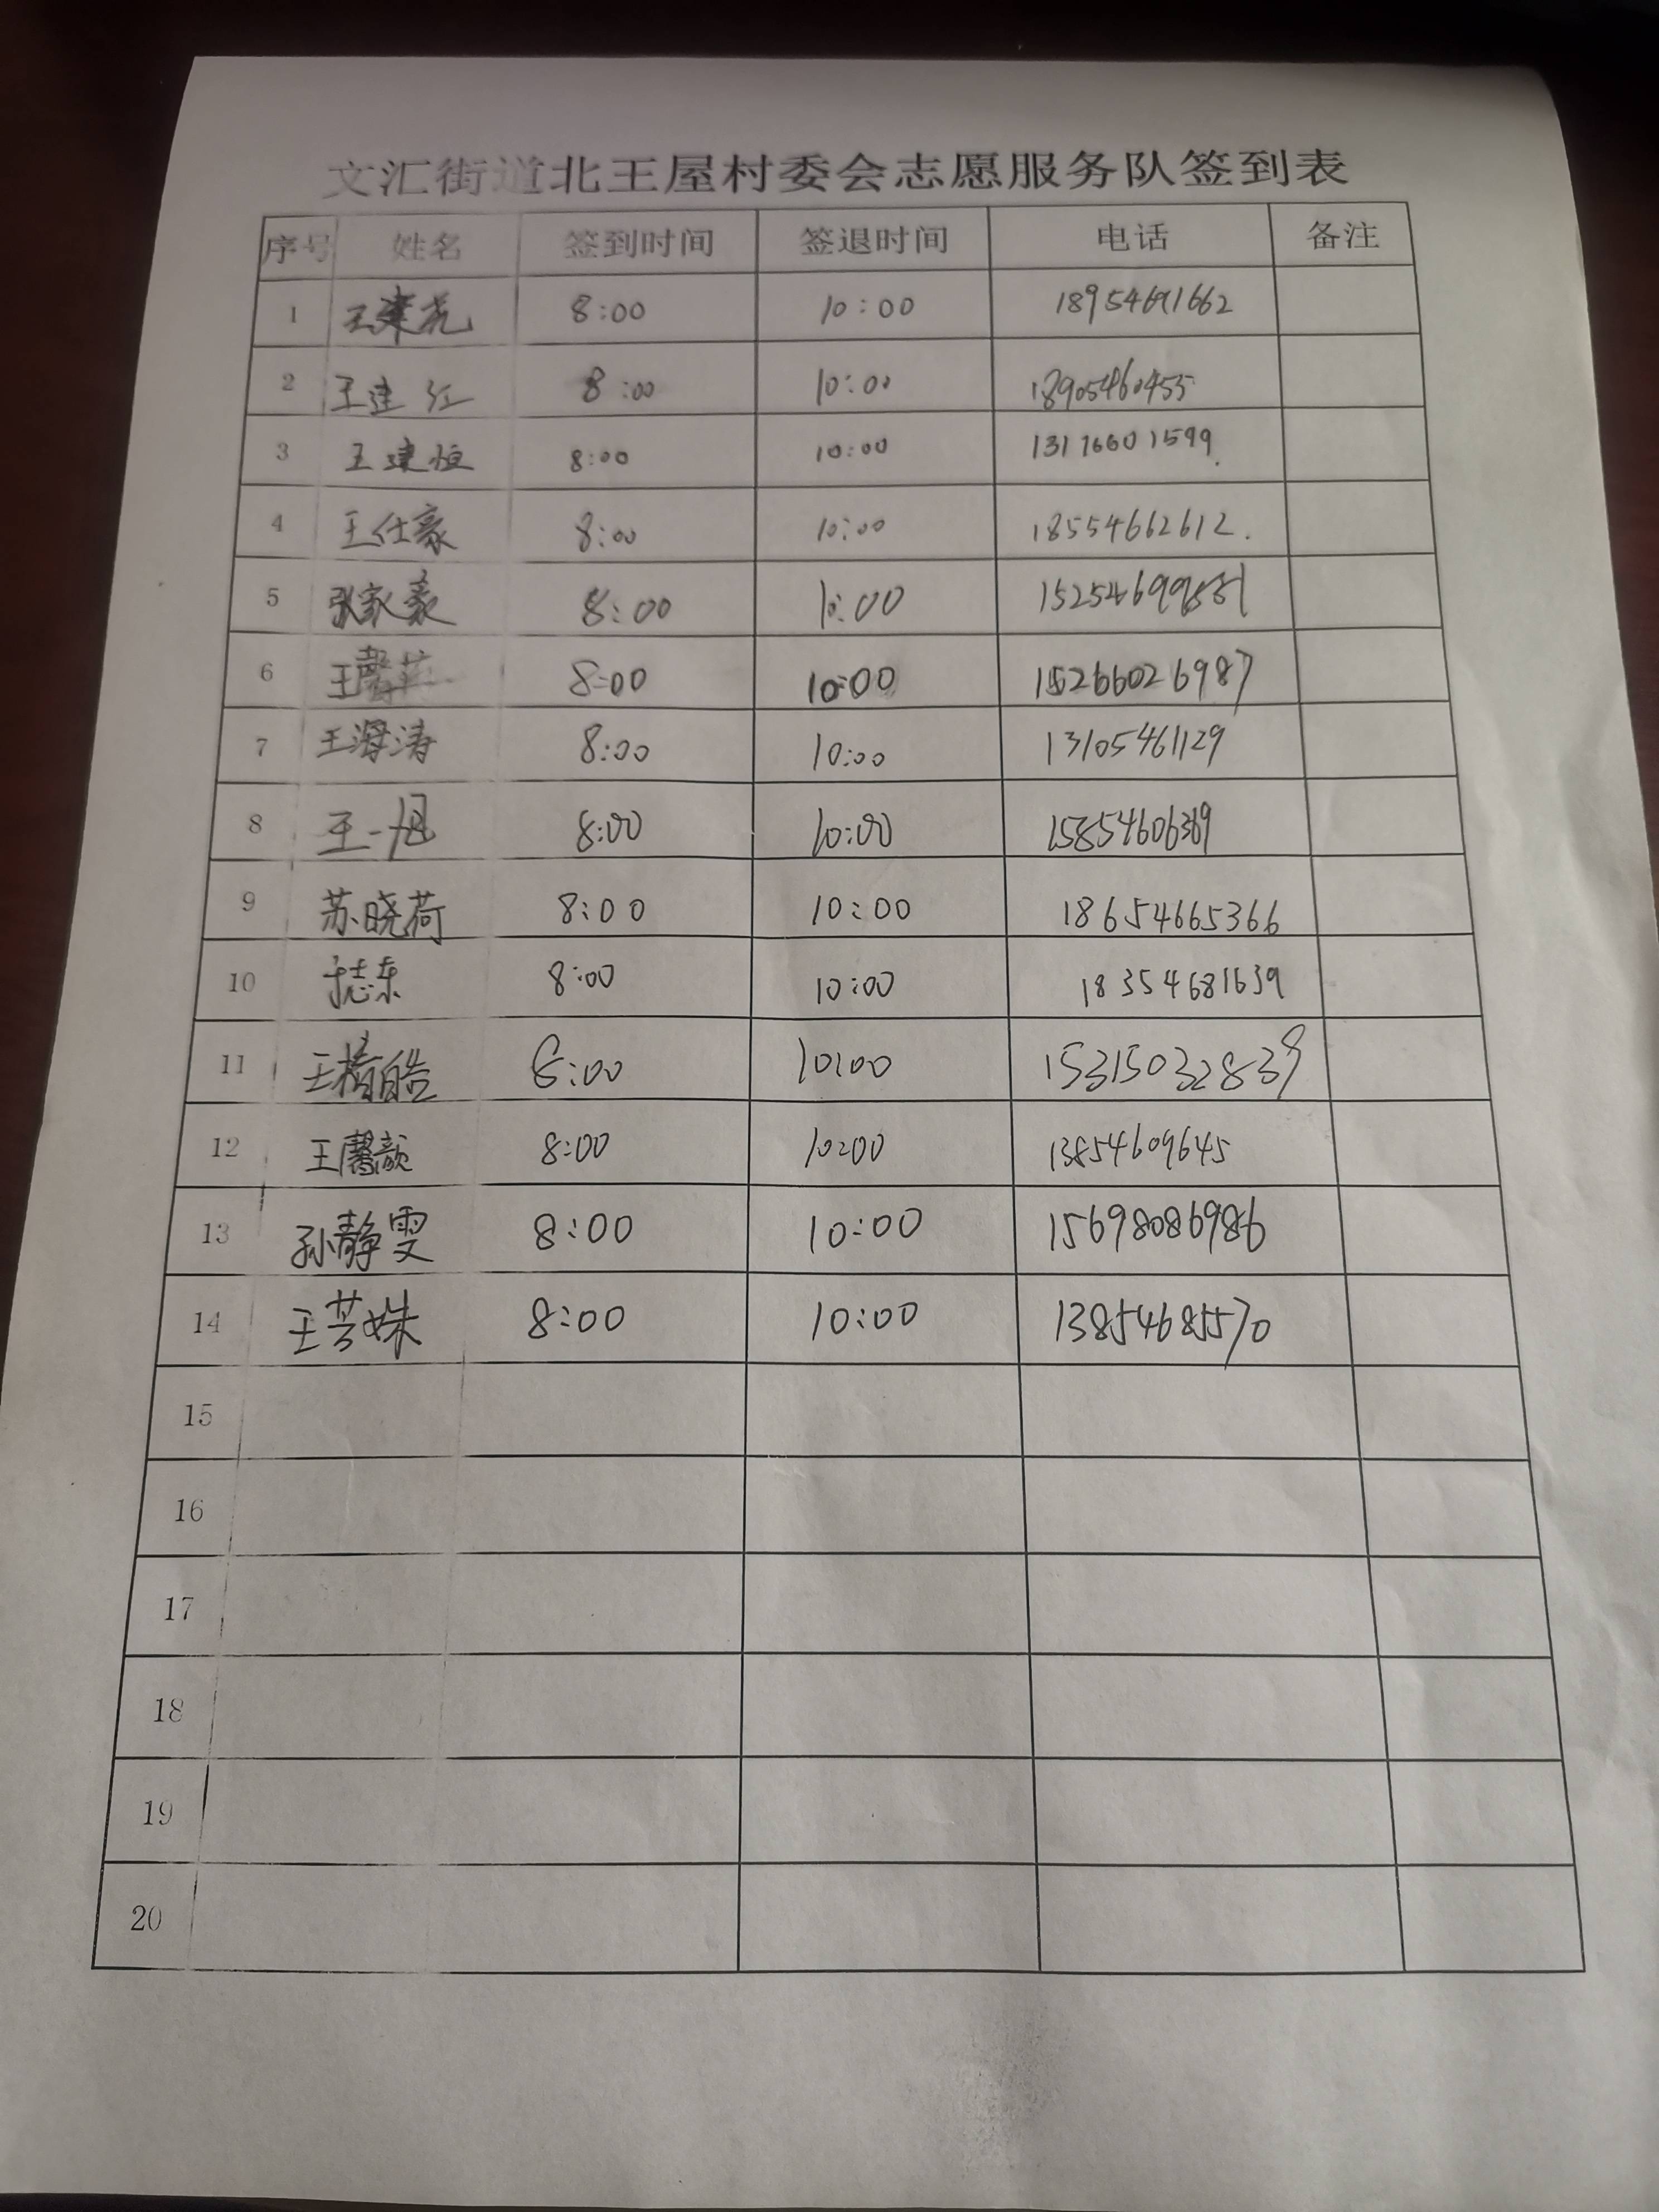 文汇街道北王屋村委会志愿服务队签到表
序号 姓名 签到时间 签退时间 电话 备注
1 王建尧 8:00 10:00 18954691662
2 王建红 8:00 10:00 18905460455
3 王建恒 8:00 10:00 13176601599
4 王仕豪 8:00 10:00 18554662612.
5 张家豪 8:00 10:00
6 8:00 10:00 15266026987
7 王海涛 8:00 10:00 13105461129
8 王一旭 8:00 10:00 15854606369
9 苏晓荷 8:00 10:00 18654665366
10 于志东 8:00 10:00 18354681639
11 8:00 10:00 15315032839
12 王馨颜 8:00 10:00 13854609645
13 孙静雯 8:00 10:00 15698086986
14 王芳姝 8:00 10:00 13854685570
15
16
17
18
19
20